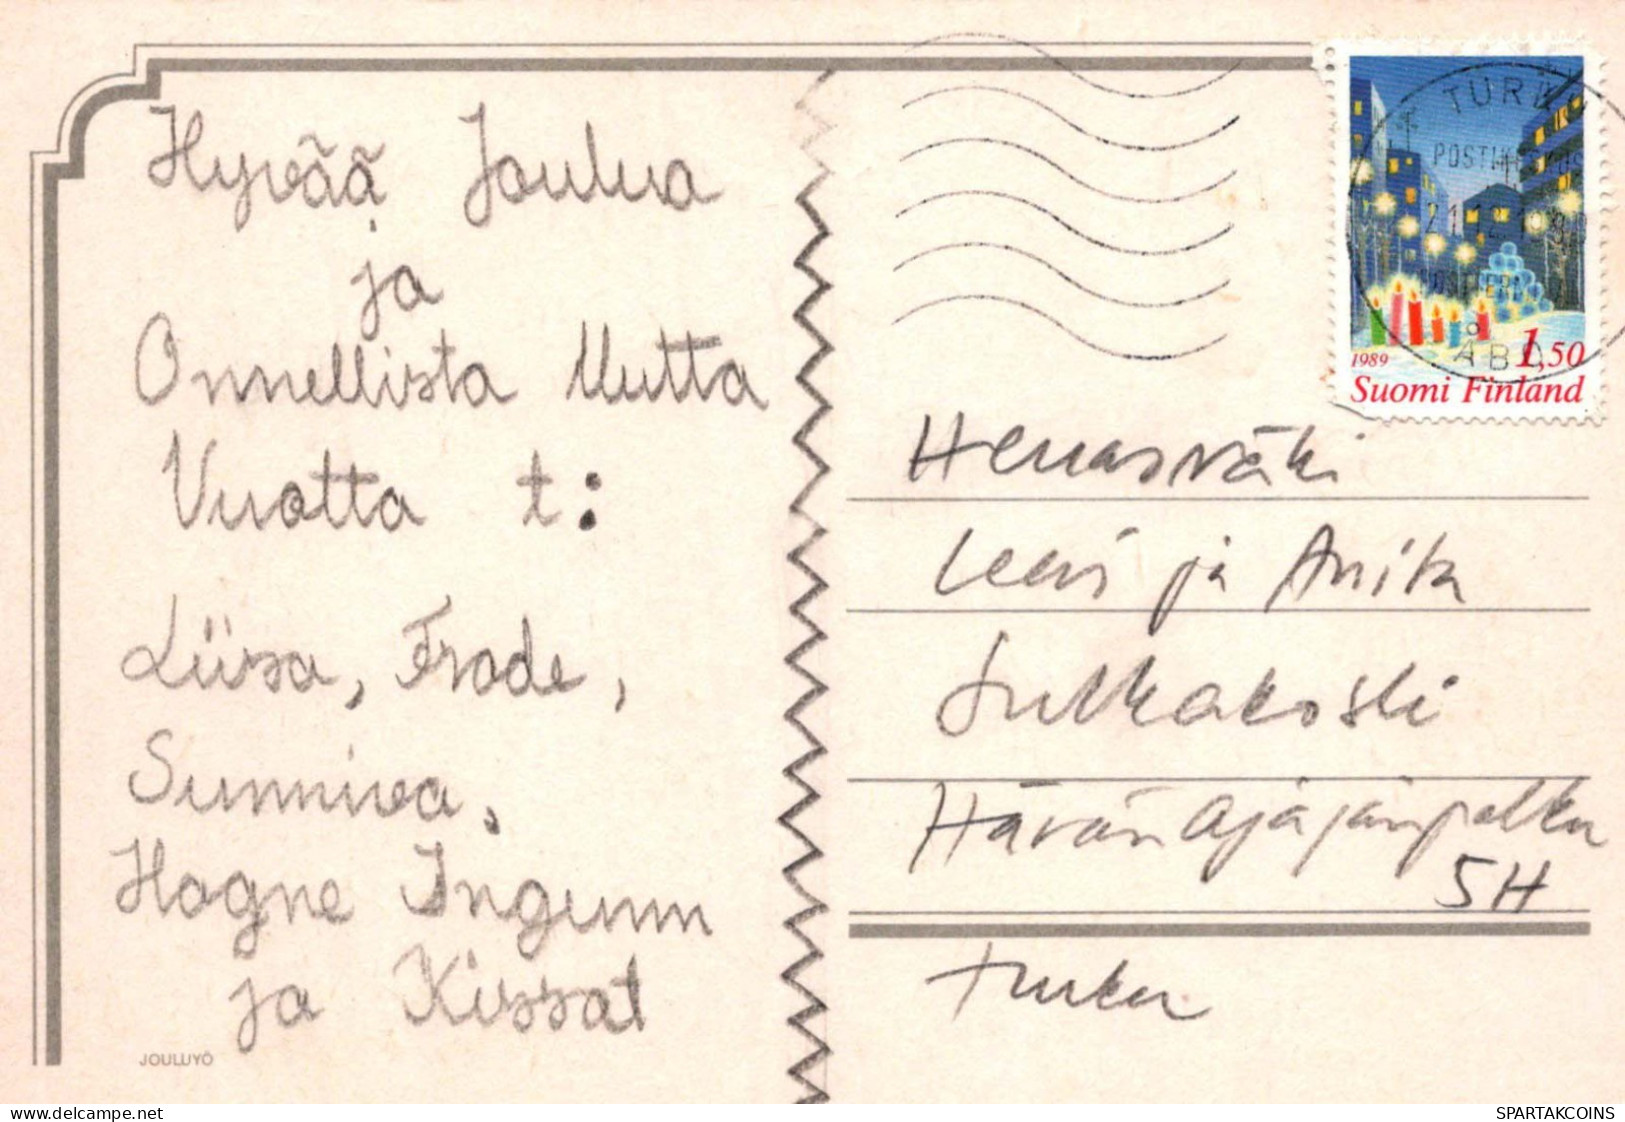 Hyvää Joulua
ja
Onnellista Uutta
Vuotta t:
Liisa, Frode,
Sunniva,
Hogne Ingunn
ja Kissat
JOULUYÖ
TURKU
21.12.1989
ÅBO
1989 1,50
Suomi Finland
Herrasväki
Leevi ja Anita
Sulkakoski
Härän ajajänpolku
5H
Turku
www.delcampe.net
SPARTAKCOINS